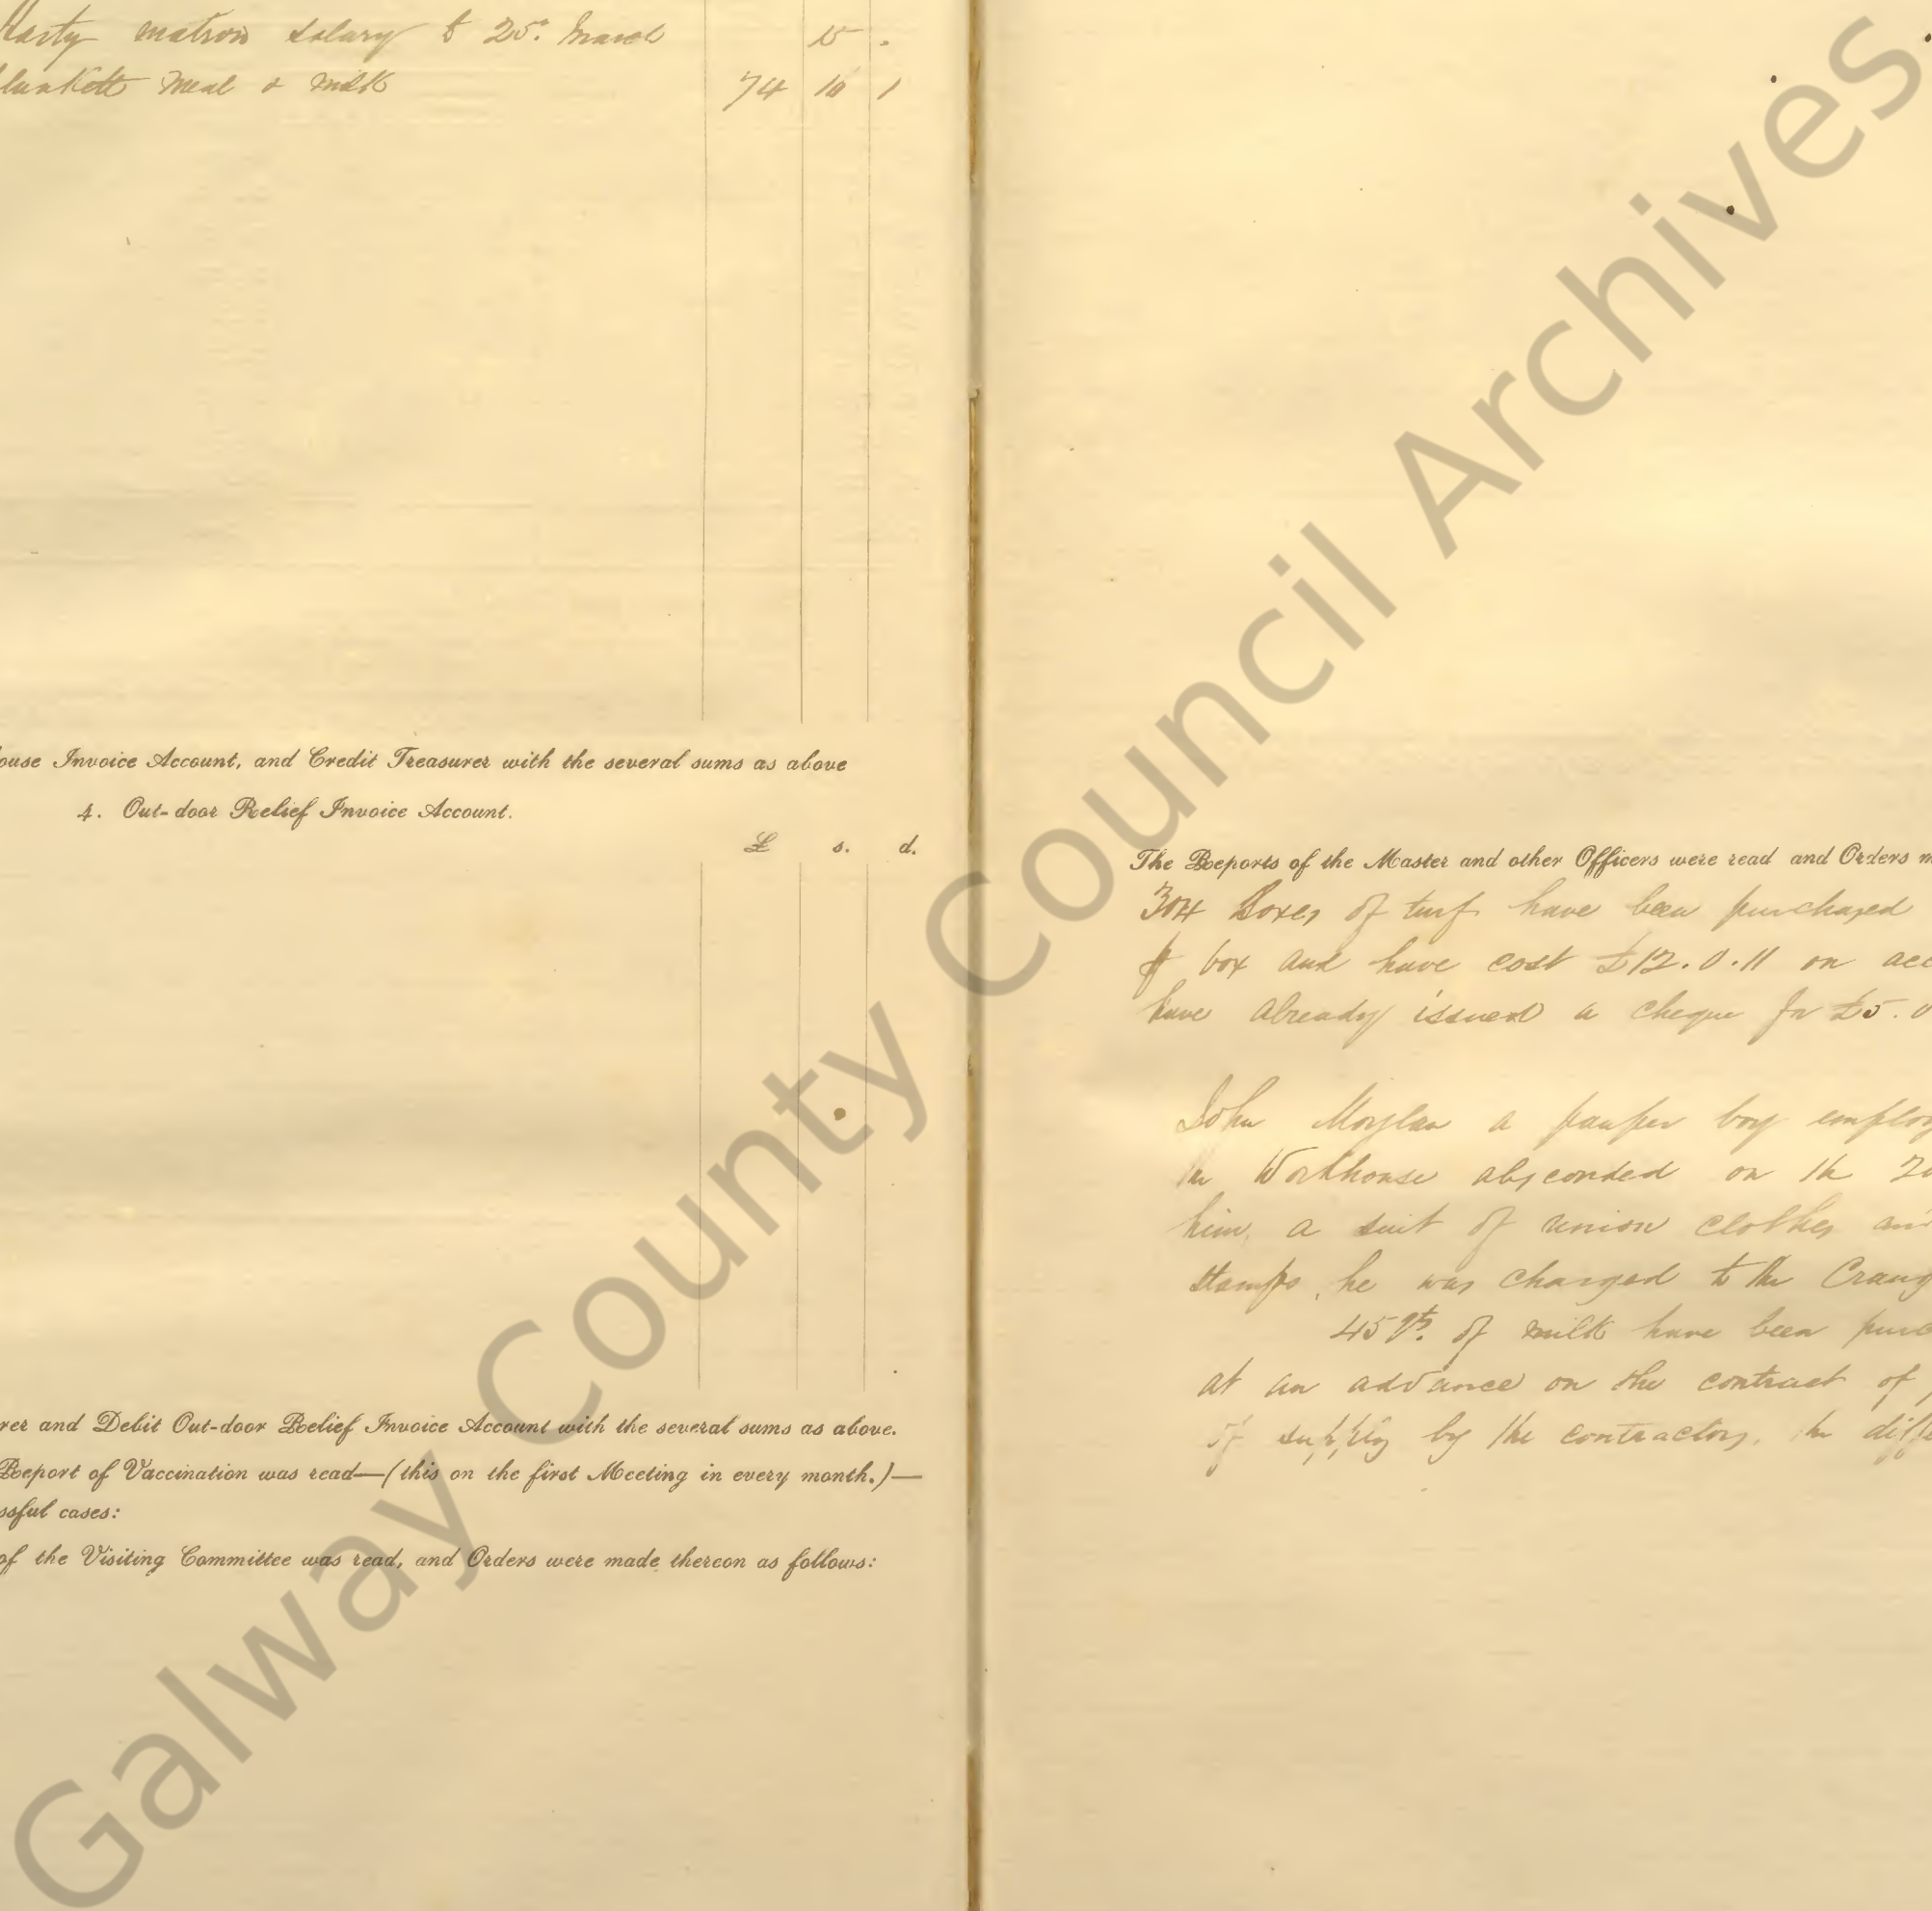 matron salary to 25th March 15 .
Meal & milk 74 10 1
ouse Invoice Account, and Credit Treasurer with the several sums as above
4. Out-door Relief Invoice Account.
£ s. d.
rer and Debit Out-door Relief Invoice Account with the several sums as above.
Report of Vaccination was read—(this on the first Meeting in every month.)—
ssful cases:
of the Visiting Committee was read, and Orders were made thereon as follows:
The Reports of the Master and other Officers were read and Orders m
304 Boxes of turf have been purchased
box and have cost £12.0.11 on acc
have already issued a cheque for £5.0
John a pauper boy employ
in Workhouse absconded on the 20
him, a suit of union clothes and
stamps, he was charged to the Craug
45 qts. of milk have been purc
at an advance on the contract of
of supply by the contractors, the diffe
Galway County Council Archives